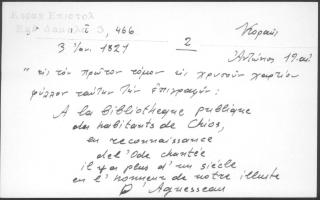 Κοραη Επιστολ
τ. Γ̄, 466. Κοραής
3 Ιαν. 1821 2
Αντώνιος 19.αι.
" εις τον πρώτον τόμον εις χρυσούν χαρτίον
φύλλον ταύτην την επιγραφήν :
A la bibliotheque publique
des habitants de Chios,
en reconnaissance
del'Ode chantée
il y a plus d'un siécle
en l'honneur de notre illuste
D'Aguesseau